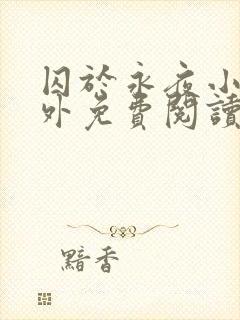 囚於永夜小
外免費閱讀
黯香